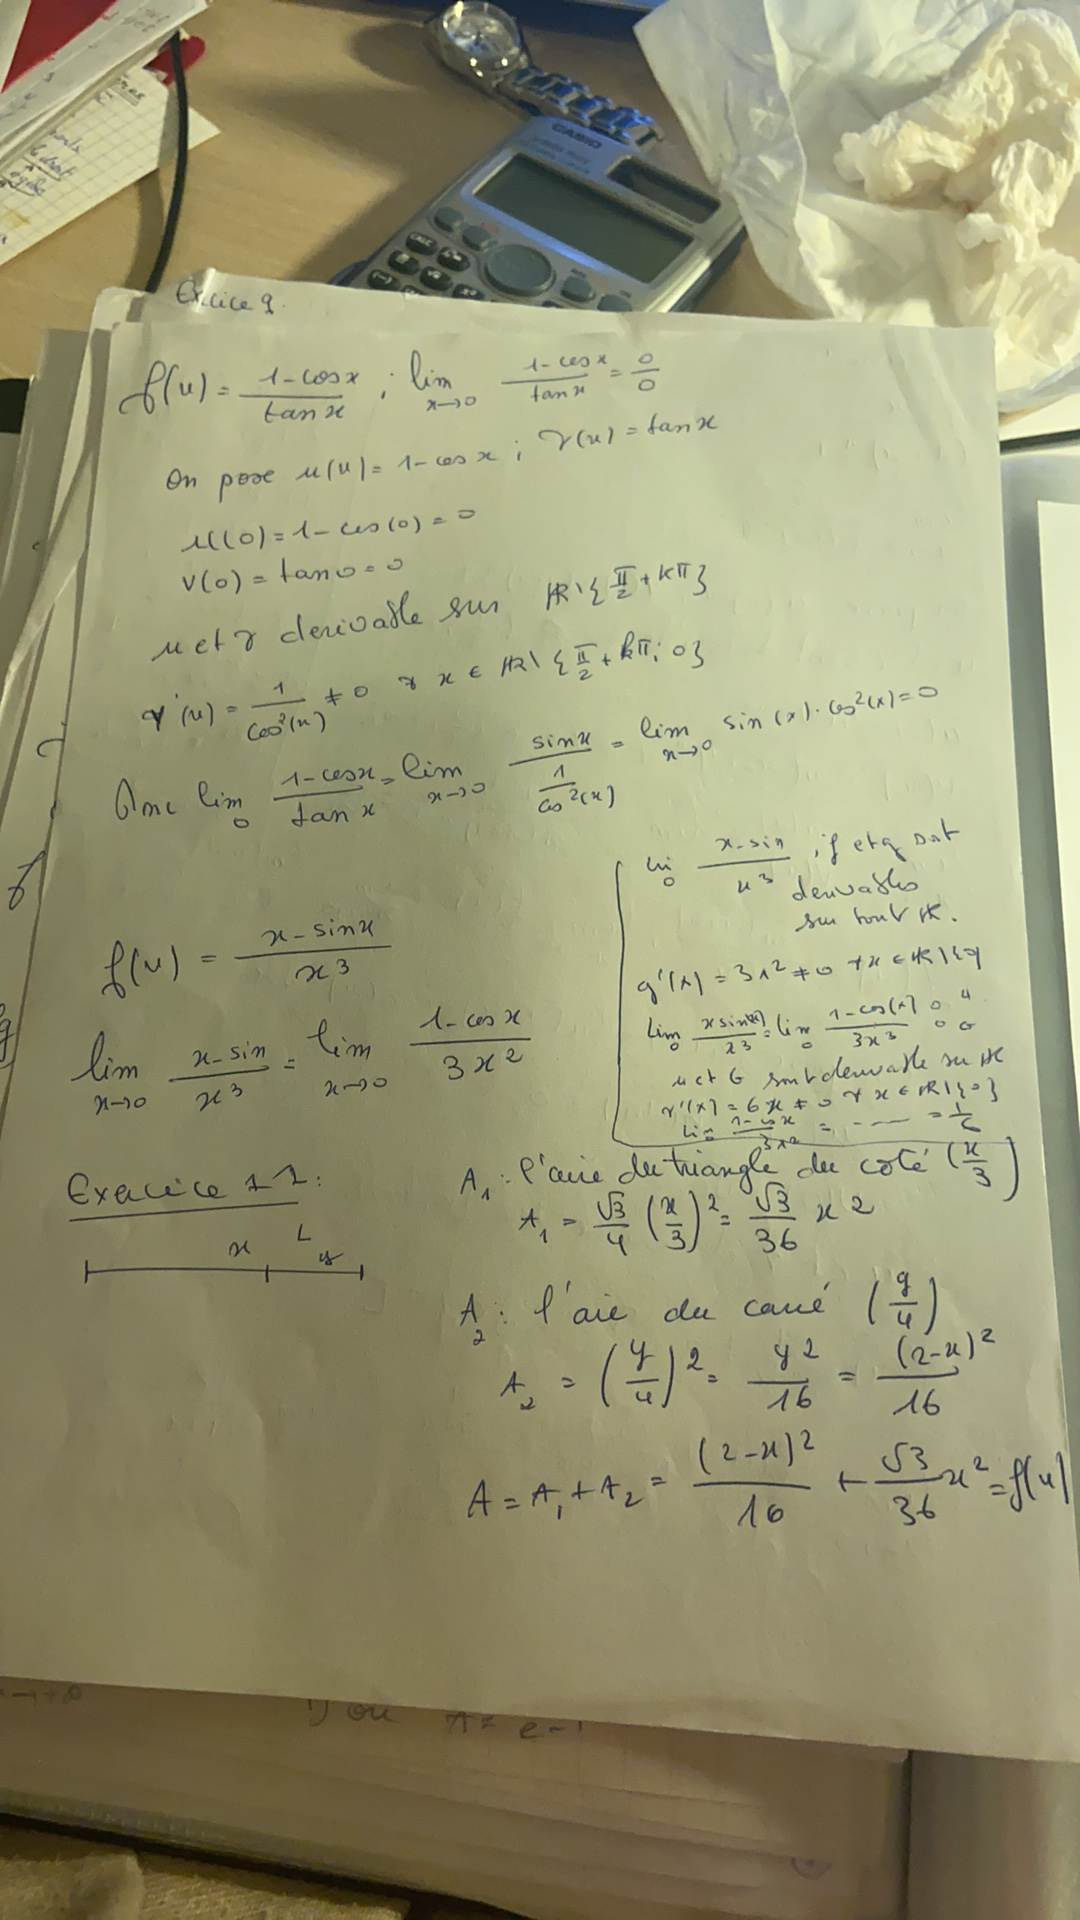 CASIO
Exercice 9.
f(x) = (1-cosx)/(tan x) ; lim x→0 (1-cosx)/(tanx) = 0/0
On pose u(x) = 1-cos x ; v(x) = tan x
u(0) = 1-cos(0) = 0
v(0) = tan 0 = 0
u et v derivable sur ℝ\{π/2 + kπ}
v'(x) = 1/(cos²(x)) ≠ 0 ∀ x ∈ ℝ\{π/2 + kπ; 0}
Donc lim 0 (1-cosx)/(tan x) = lim x→0 (sinx)/(1/cos²(x)) = lim x→0 sin(x)·cos²(x) = 0
f(x) = (x-sinx)/(x³)
lim x→0 (x-sin)/(x³) = lim x→0 (1-cosx)/(3x²)
lim 0 (x-sin)/(x³) ; f et g sont
derivables
sur tout ℝ.
g'(x) = 3x² ≠ 0 ∀x ∈ ℝ\{0}
Lim 0 (x sin(x))/(x³) = lim 0 (1-cos(x))/(3x³)
u et G sont derivable sur ℝ
v'(x) = 6x ≠ 0 ∀ x ∈ ℝ\{0}
Lim (1-cosx)/(3x²) = ---- = 1/6
Exercice 11:
x L y
A₁ : l'aire du triangle du coté (x/3)
A₁ = √3/4 (x/3)² = √3/36 x²
A₂ : l'aie du carré (y/4)
A₂ = (y/4)² = y²/16 = (2-x)²/16
A = A₁ + A₂ = (2-x)²/16 + √3/36 x² = f(x)
1) ou A = e-1